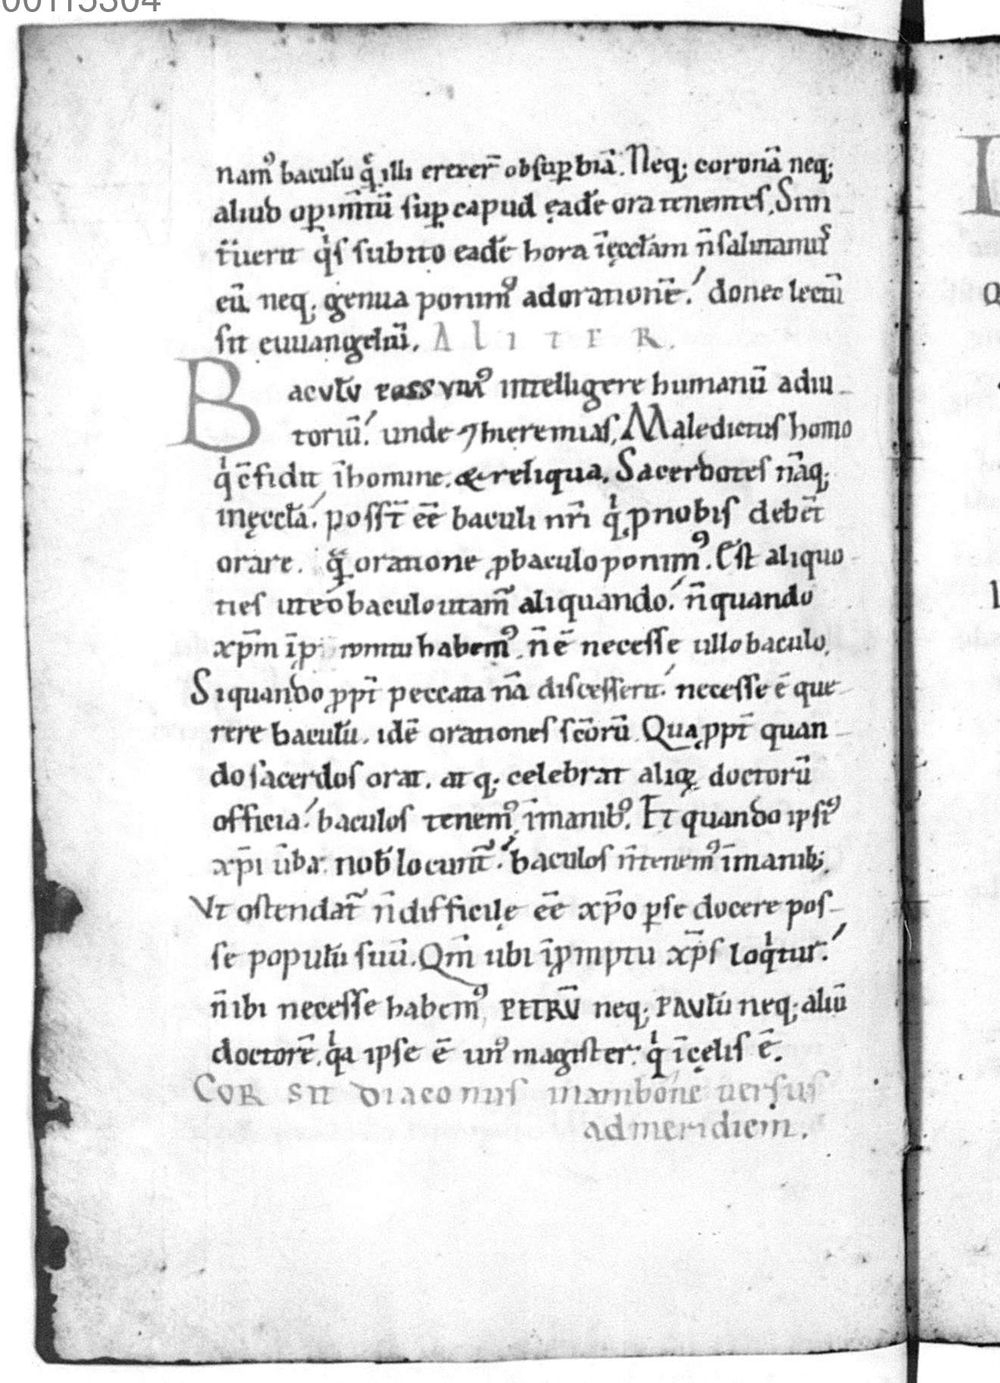 00115304
nam᷒ baculū q̄ illi ererēr̄ obsup̱biā. Neq; coronā neq;
aliud op̱im̄tū sup̱ capud ęadē ora tenentes, Sin
f̄uerit q̇s subito eadē hora īęcctām n̄ salutanus
eū neq; genua ponim᷒ adorationē. donec lectū
sit euuangeliū. ALITER.
Baculū possum᷒ intelligere humanū adiu-
toriū. unde ⁊ hieremias, Maledictus homo
q̇ c̄fidit īhomine. & reliqua. Sacerdotes nāq;
inęcctā. possт̄ eē baculi nr̄i q̇ p nobis debēt
orare. quā oratione p baculo ponim᷒. Ēst aliquo
ties uteō baculo utam᷒ aliquando. n̄ quando
xp̄m īp habem᷒. n̄ ē necesse ullo baculo.
Siquando ppt̄ peccata nā discesserit. necesse ē que
rere baculū. idē orationes sc̄orū. Quąppt̄ quan-
do sacerdos orat. atq; celebrat aliq̨ doctorū
officia. baculos tenem᷒ īmanib᷒. Et quando ipsi᷒
xp̄i ūba nob̄ locunt̄. baculos n̄ tenem᷒ īmanib;.
Vt ostendat̄ n̄ difficile eē xp̄o p̱se docere pos-
se populū suū. Qm̄ ubi īp̱mptu xp̄s loq̇tur.
n̄ ibi necesse habem᷒ PETRŪ neq; PAVLū neq; aliū
doctorē. q̇a ipse ē un᷒ magister. q̇ īcęlis ē.
CVR sit diaconus inambōne uersus
admeridiem.